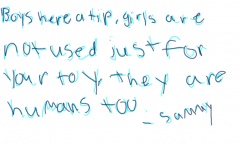 Boys here a tip, girls are
not used just for
your toy, they are
humans too - sammy